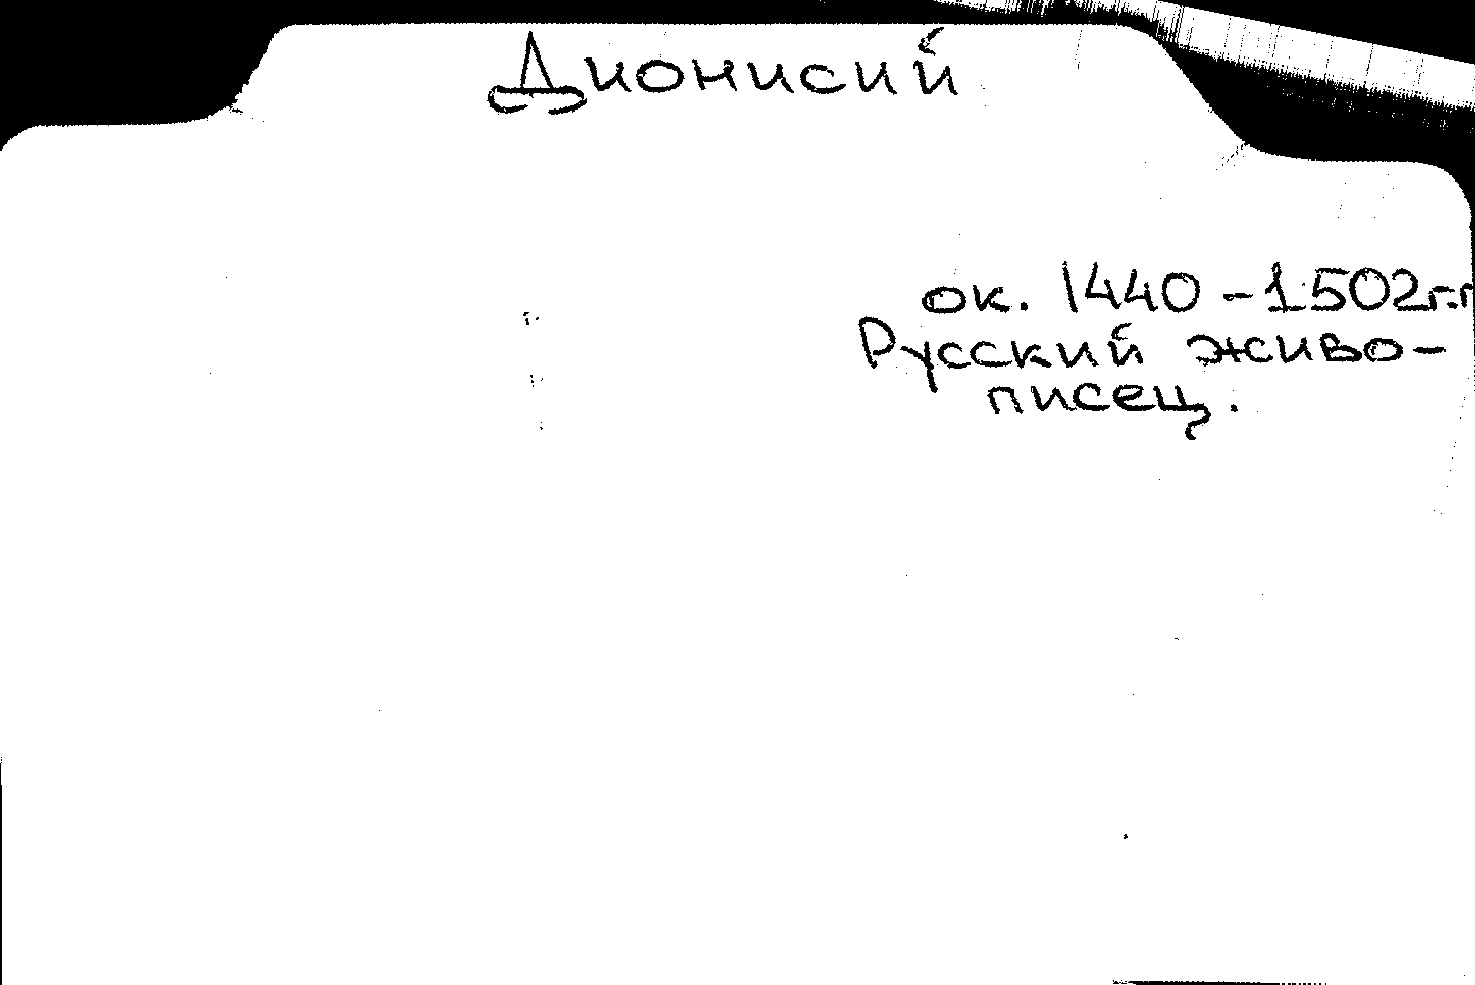 Дионисий
ок. 1440-1502г.г
Русский живо-
писец.